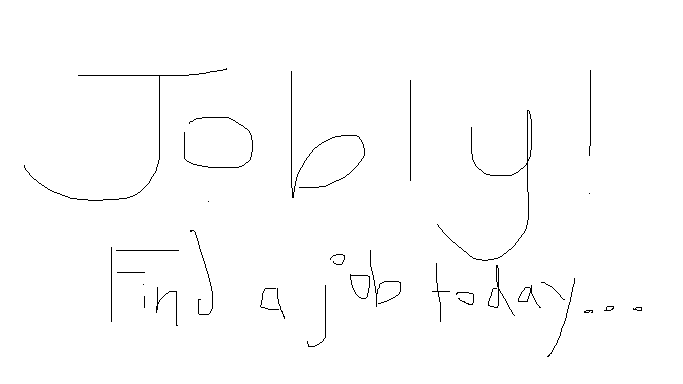 Jobly!
Find a job today...